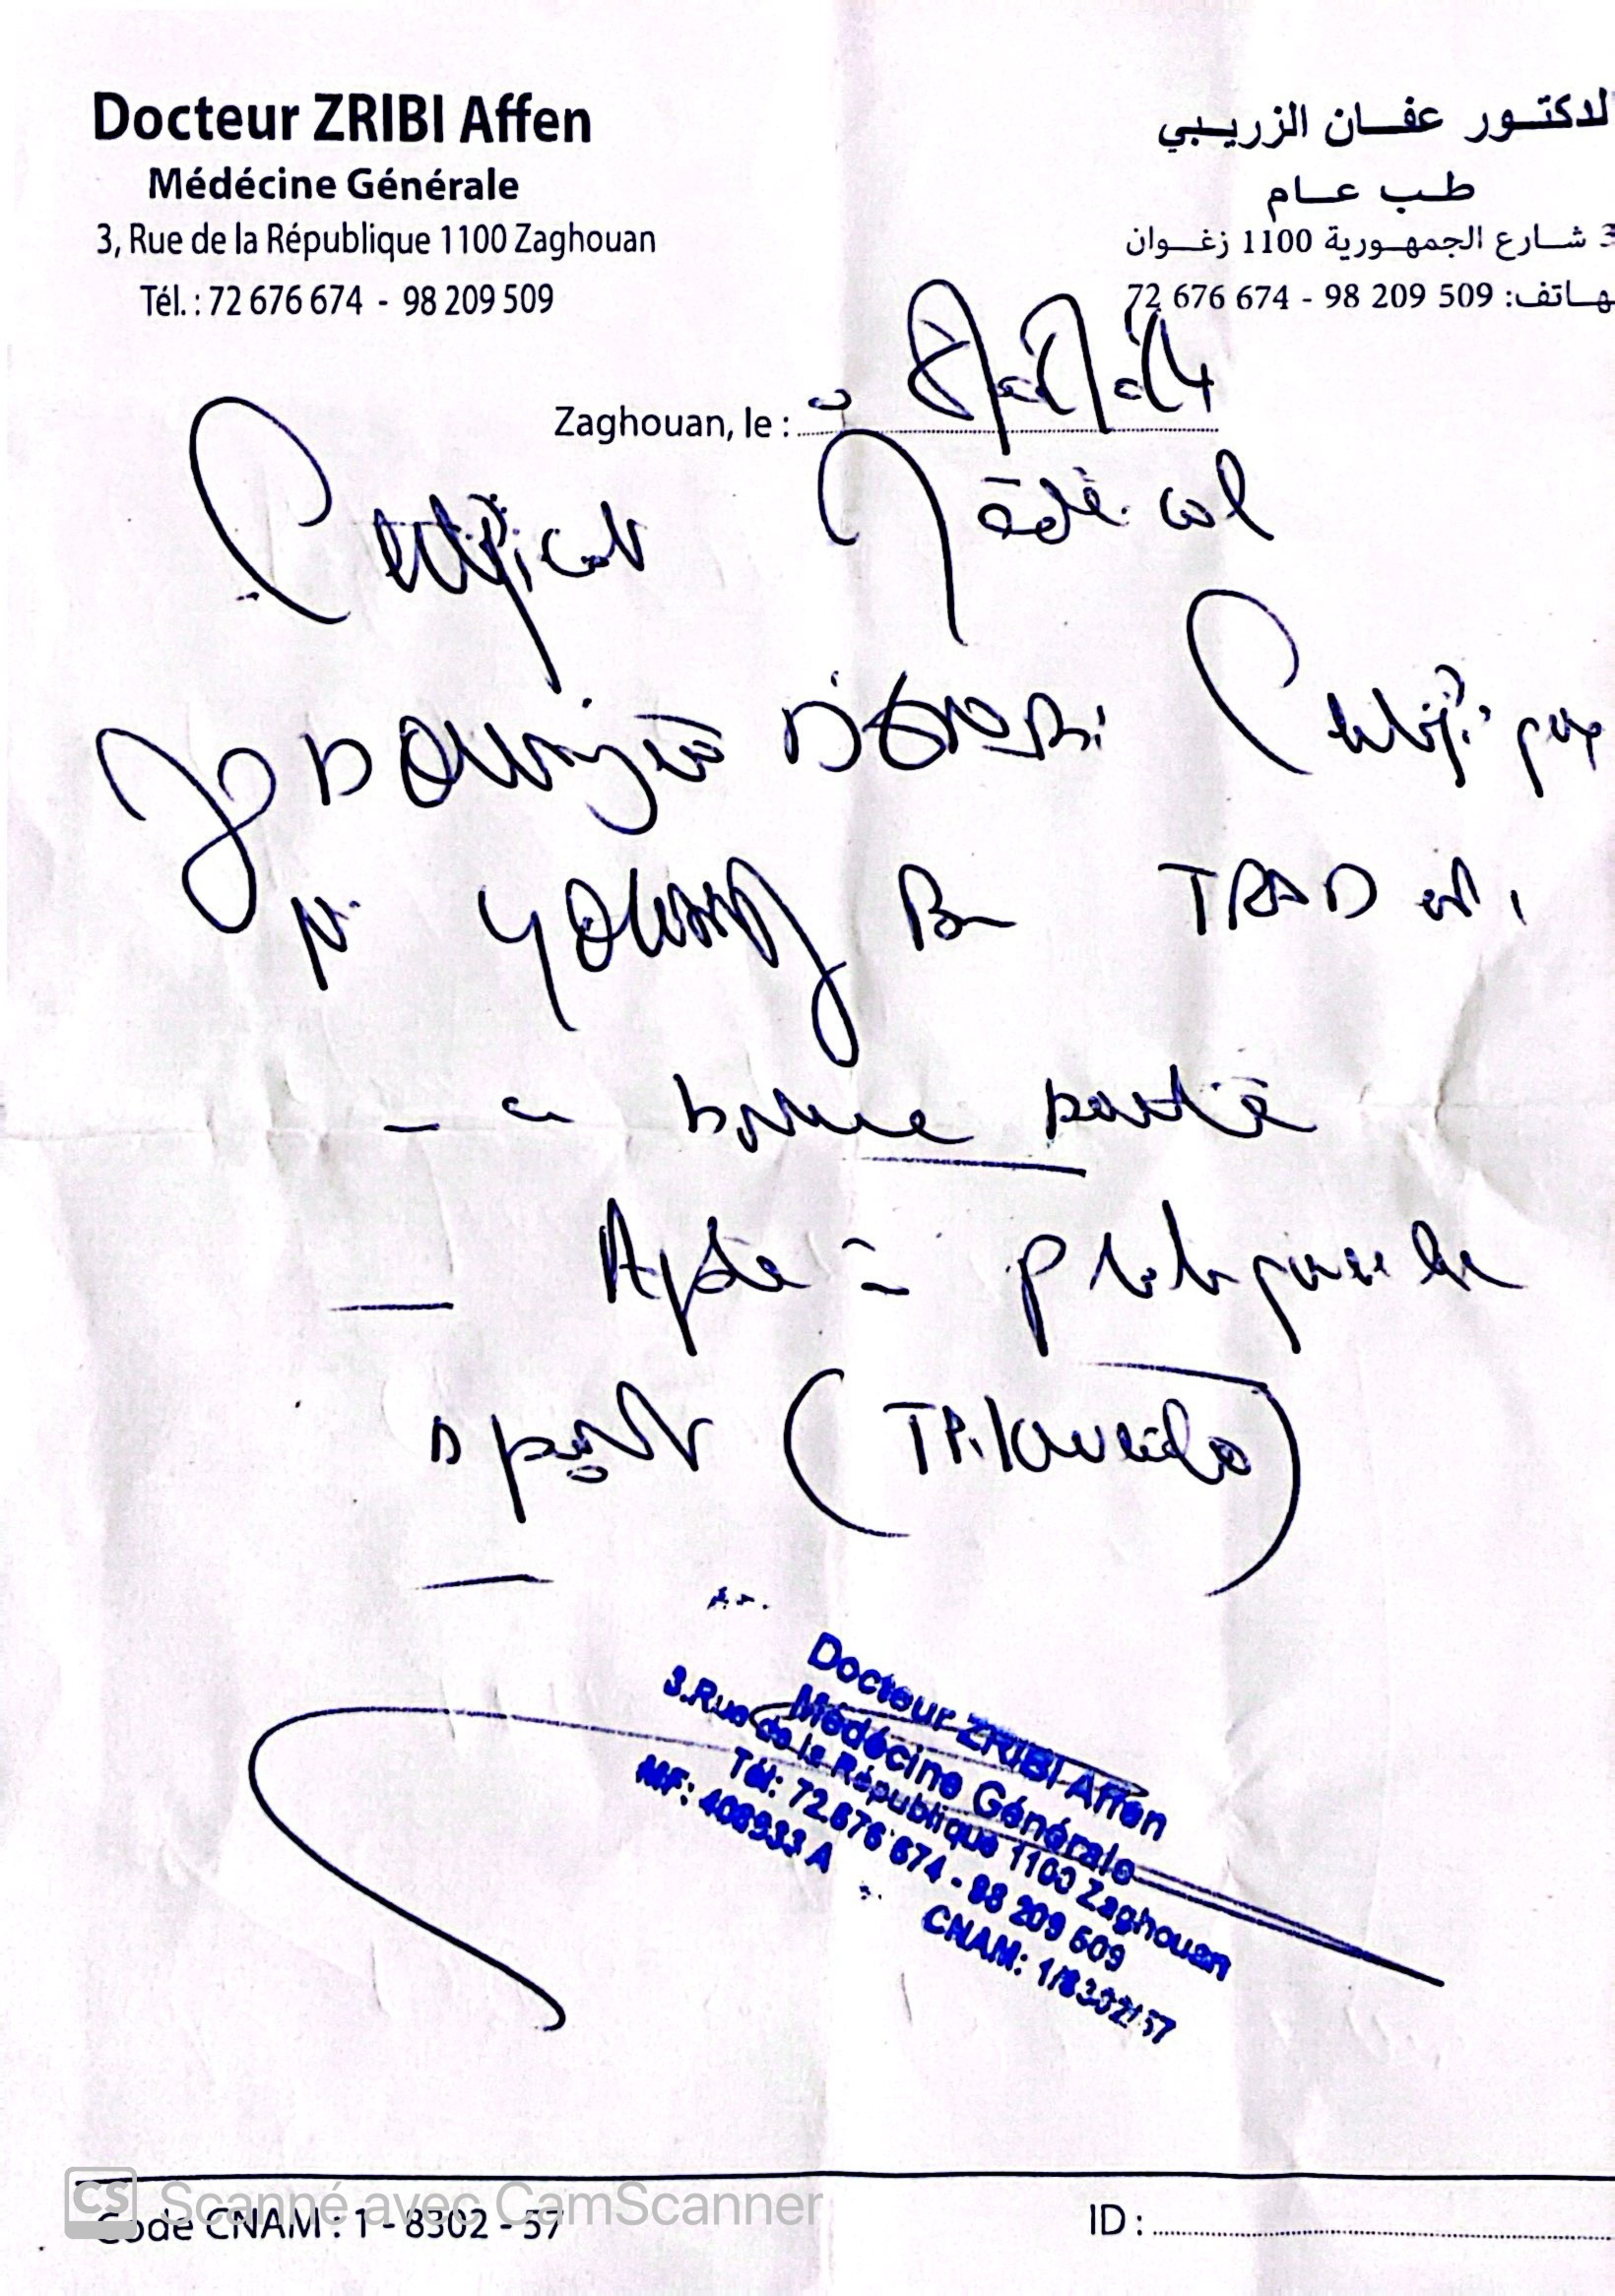 Docteur ZRIBI Affen
Médécine Générale
3, Rue de la République 1100 Zaghouan
Tél. : 72 676 674 - 98 209 509
لدكتور عفان الزريبي
طب عام
3 شارع الجمهورية 1100 زغوان
هاتف: 72 676 674 - 98 209 509
Zaghouan, le :
Certificat Médical
Je soussigné Certifie que
Mr YOUSSEF Ben TRAD est
- en bonne santé
- Apte à pratiquer le
sport (
Docteur ZRIBI Affen
Médécine Générale
3.Rue de la République 1100 Zaghouan
Tél: 72 676 674 - 98 209 509
MF: 408933 A
CNAM: 1/8302/57
Scanné avec CamScanner
CS
Code CNAM : 1 - 8302 - 57
ID :